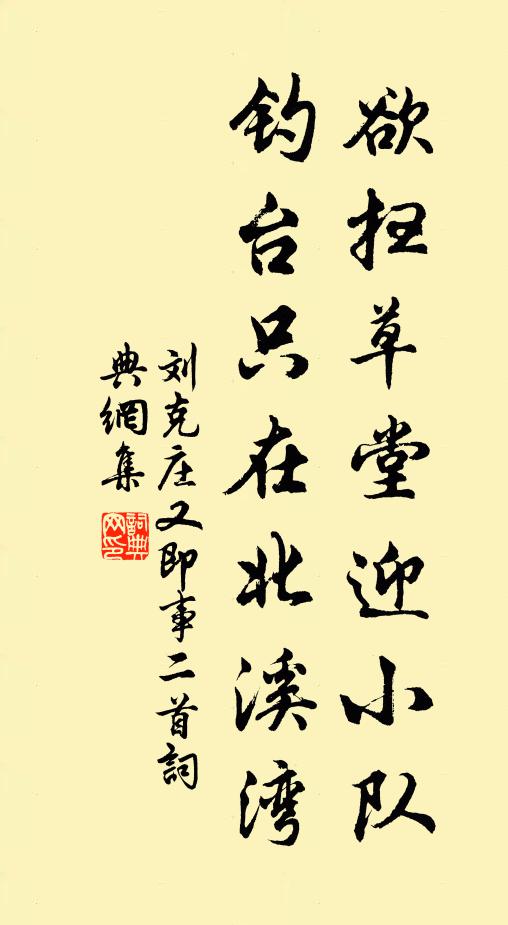 欲扫草堂迎小队
钓台只在北溪湾
刘克庄又即事二首詞
典網集
詞典
网印